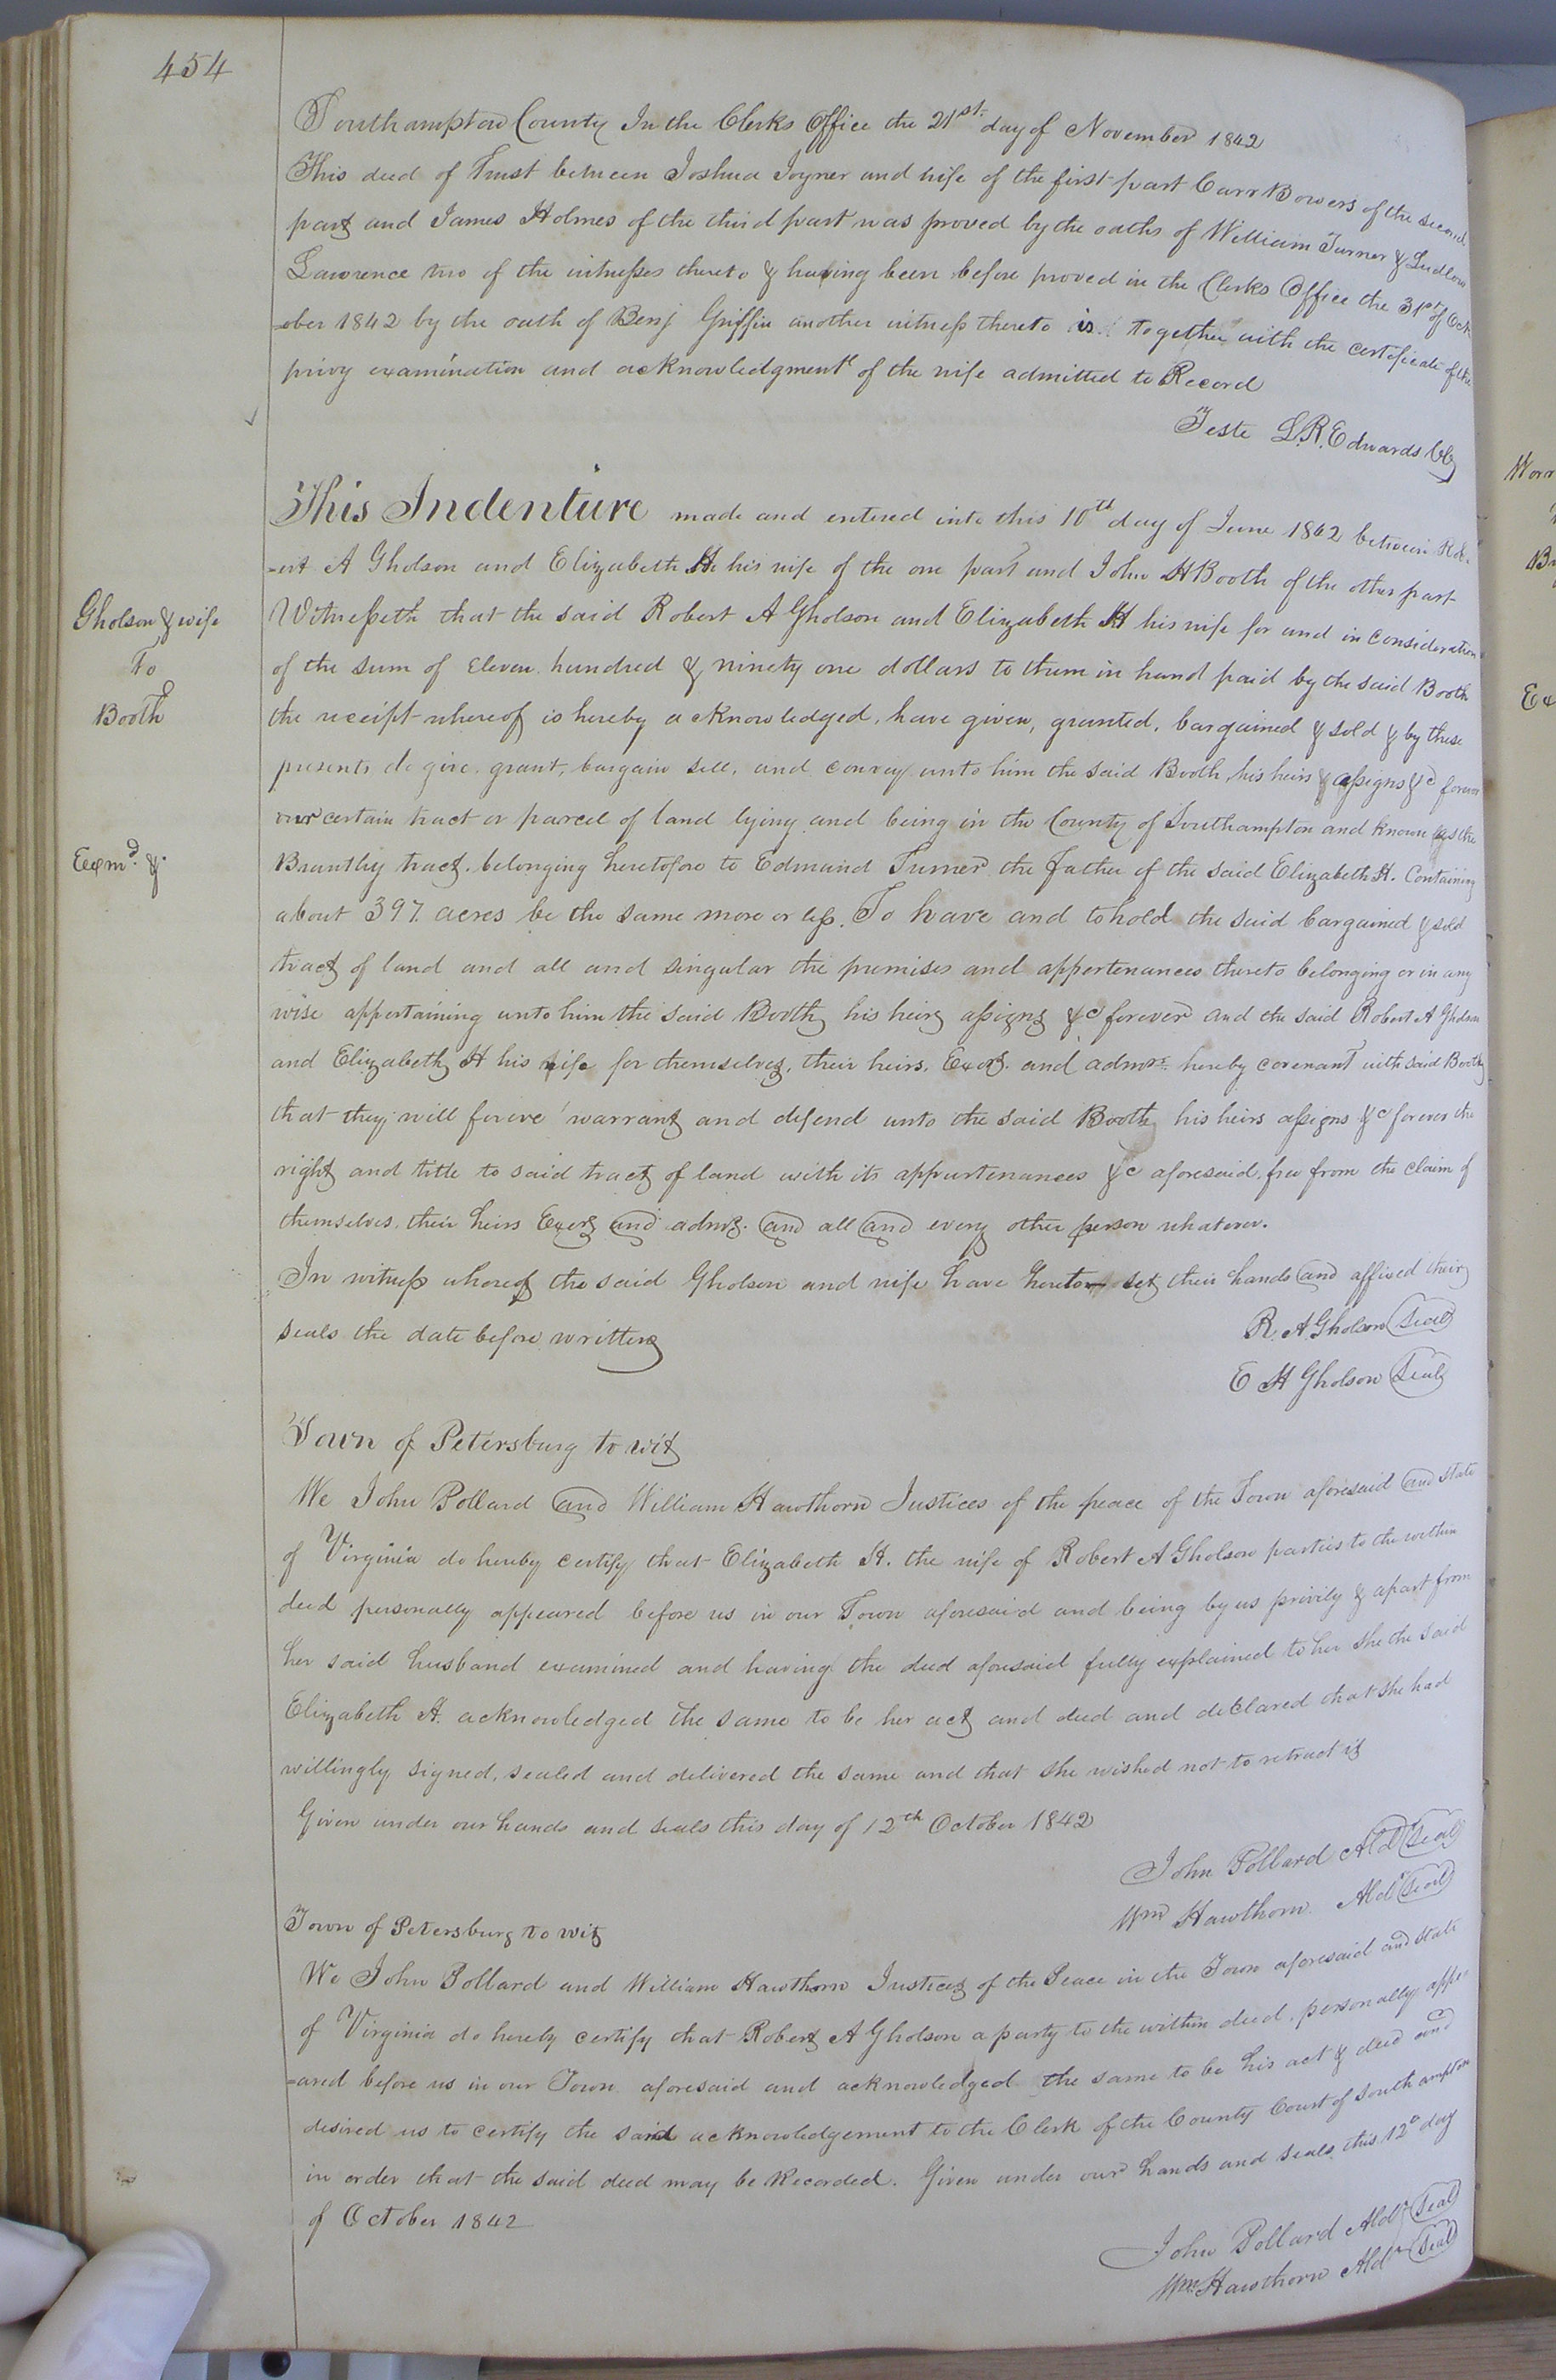 454
Southampton County In the Clerks Office the 21st day of November 1842
This deed of Trust between Joshua Joyner and wife of the first part Carr Bowers of the second
part and James Holmes of the third part was proved by the oaths of William Turner & Ludlow
Lawrence two of the witnesses thereto & having been before proved in the Clerks Office the 31st of Oct
=ober 1842 by the oath of Benj Griffin another witness thereto is together with the certificate of the
privy examination and acknowledgment of the wife admitted to Record
Teste L.R. Edwards Clk
This Indenture made and entered into this 10th day of June 1842 between Rob
=ert A Gholson and Elizabeth H his wife of the one part and John H Booth of the other part
Gholson & wife
To
Booth
Witnesseth that the said Robert A Gholson and Elizabeth H his wife for and in consideration
of the sum of eleven hundred & ninety one dollars to them in hand paid by the said Booth
the receipt whereof is hereby acknowledged, have given, granted, bargained & sold & by these
presents do give, grant, bargain sell, and convey unto him the said Booth, his heirs & assigns &c forever
our certain tract or parcel of land lying and being in the County of Southampton and known as the
Exmd. &.
Brantley tract. belonging heretofore to Edmund Turner the father of the said Elizabeth H. Containing
about 397 acres be the same more or less. To have and to hold the said bargained & sold
tract of land and all and singular the premises and appertenances thereto belonging or in any
wise appertaining unto him the said Booth his heirs assigns &c forever and the said Robert A Gholson
and Elizabeth H his wife for themselves, their heirs, Exors. and admrs. hereby covenant with said Booth
that they will foreve' warrant and defend unto the said Booth his heirs assigns &c forever the
right and title to said tract of land with its appurtenances &c aforesaid, free from the claim of
themselves, their heirs Exors and admrs. and all and every other person whatever.
In witness whereof the said Gholson and wife have hereto set their hands and affixed their
seals the date before written
R. A Gholson Seal
E H Gholson Seal
Town of Petersburg to wit
We John Pollard and William Hawthorn Justices of the peace of the Town aforesaid and State
of Virginia do hereby certify that Elizabeth H. the wife of Robert A Gholson parties to the within
deed personally appeared before us in our Town aforesaid and being by us privily & apart from
her said husband examined and having the deed aforesaid fully explained to her she the said
Elizabeth H. acknowledged the same to be her act and deed and declared that she had
willingly signed, sealed and delivered the same and that she wished not to retract it
Given under our hands and seals this day of 12th October 1842
John Pollard Ald Seal
Wm Hawthorn Aldr Seal
Town of Petersburg to wit
We John Pollard and William Hawthorn Justices of the Peace in the Town aforesaid and State
of Virginia do hereby certify that Robert A Gholson a party to the within deed, personally appe
=ared before us in our Town aforesaid and acknowledged the same to be his act & deed and
desired us to certify the said acknowledgement to the Clerk of the County Court of Southampton
in order that the said deed may be Recorded. Given under our hands and seals this 12th day
of October 1842
John Pollard Aldr Seal
Wm Hawthorn Aldr Seal